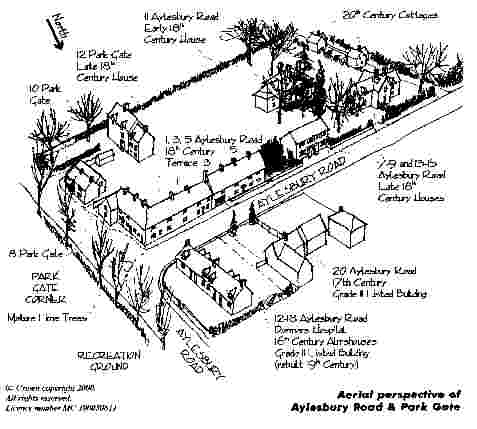 North
11 Aylesbury Road
Early 18th
Century House
20th Century Cottages
12 Park Gate
Late 18th
Century House
10 Park
Gate
1, 3, 5 Aylesbury Road
18th Century
Terrace
5
3
1
AYLESBURY ROAD
7-9 and 13-15
Aylesbury Road
Late 18th
Century Houses
8 Park Gate
PARK
GATE
CORNER
Mature Lime Trees
RECREATION
GROUND
AYLESBURY
ROAD
20 Aylesbury Road
17th Century
Grade II Listed Building
12-18 Aylesbury Road
Dormers Hospital
16th Century Almshouses
Grade II Listed Building
(rebuilt 19th Century)
© Crown copyright 2000.
All rights reserved.
Licence number MC
Aerial perspective of
Aylesbury Road & Park Gate